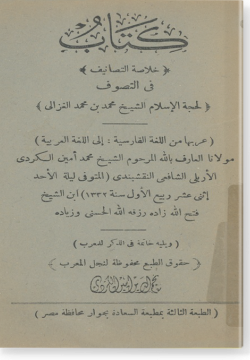 كتاب
﴿ خلاصة التصانيف ﴾
فى التصوف
﴿ لحجة الاسلام الشيخ محمد بن محمد الغزالى ﴾
( عربها من اللغة الفارسية : إلى اللغة العربية )
مولانا العارف بالله المرحوم الشيخ محمد أمين الكردى
الأربلى الشافعى النقشبندى ( المتوفى ليلة الأحد
إثنى عشر ربيع الأول سنة ١٣٣٢ ) ابن الشيخ
فتح الله زاده رزقه الله الحسنى وزياده
( ويليه خاتمة فى الذكر للمعرب )
﴿ حقوق الطبع محفوظة لنجل المعرب ﴾
( الطبعة الثالثة بمطبعة السعادة بجوار محافظة مصر )